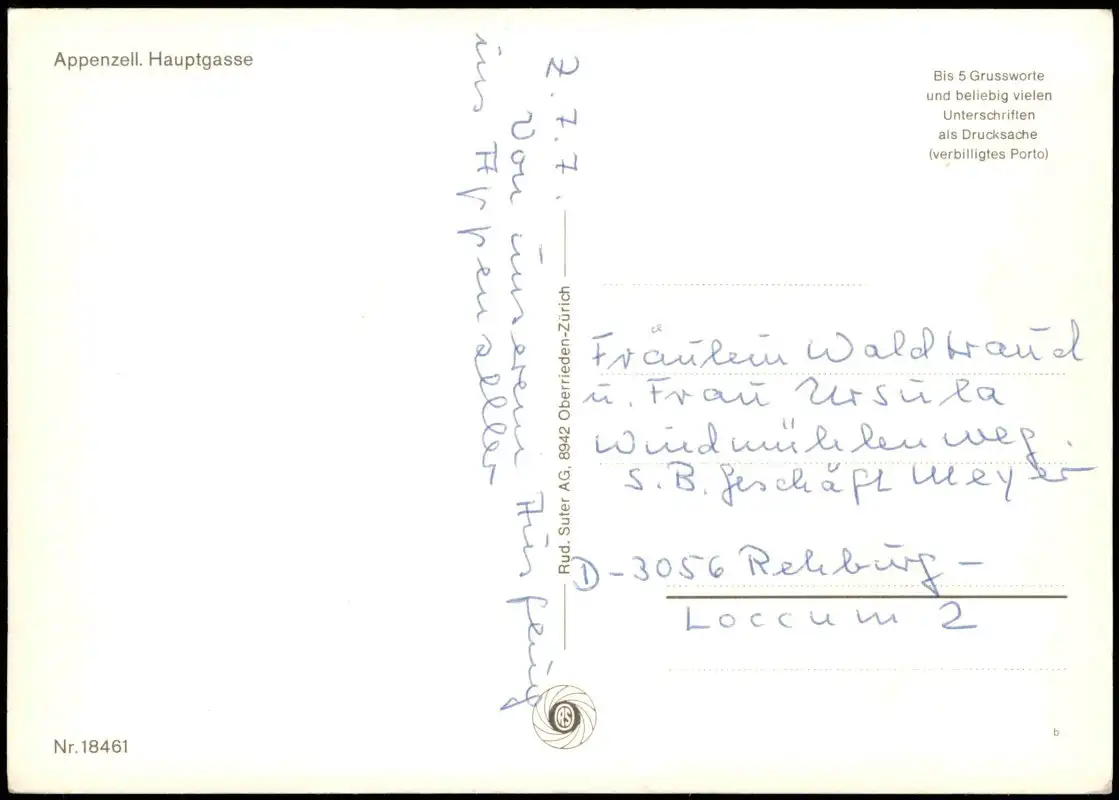 Appenzell. Hauptgasse
Bis 5 Grussworte
und beliebig vielen
Unterschriften
als Drucksache
(verbilligtes Porto)
Z. 7. 7.
Von unserem Ausflug
ins Appenzeller
Rud. Suter AG, 8942 Oberrieden-Zürich
Fräulein Waldtraud
u. Frau Ursula
Windmühlenweg.
S.B. Geschäft Meyer
D-3056 Rehburg-
Loccum 2
RS
Nr. 18461
b